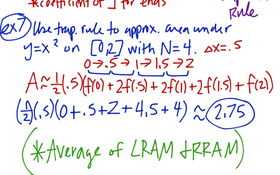 *coefficient of 1 for ends
Rule
ex 7 Use trap. rule to approx. area under
y=x² on [0,2] with N=4. Δx=.5
0→.5→1→1.5→2
A≈½(.5)(f(0)+2f(.5)+2f(1)+2f(1.5)+f(2)
(½)(.5)(0+.5+2+4.5+4) ≈ 2.75
(*Average of LRAM & RRAM)